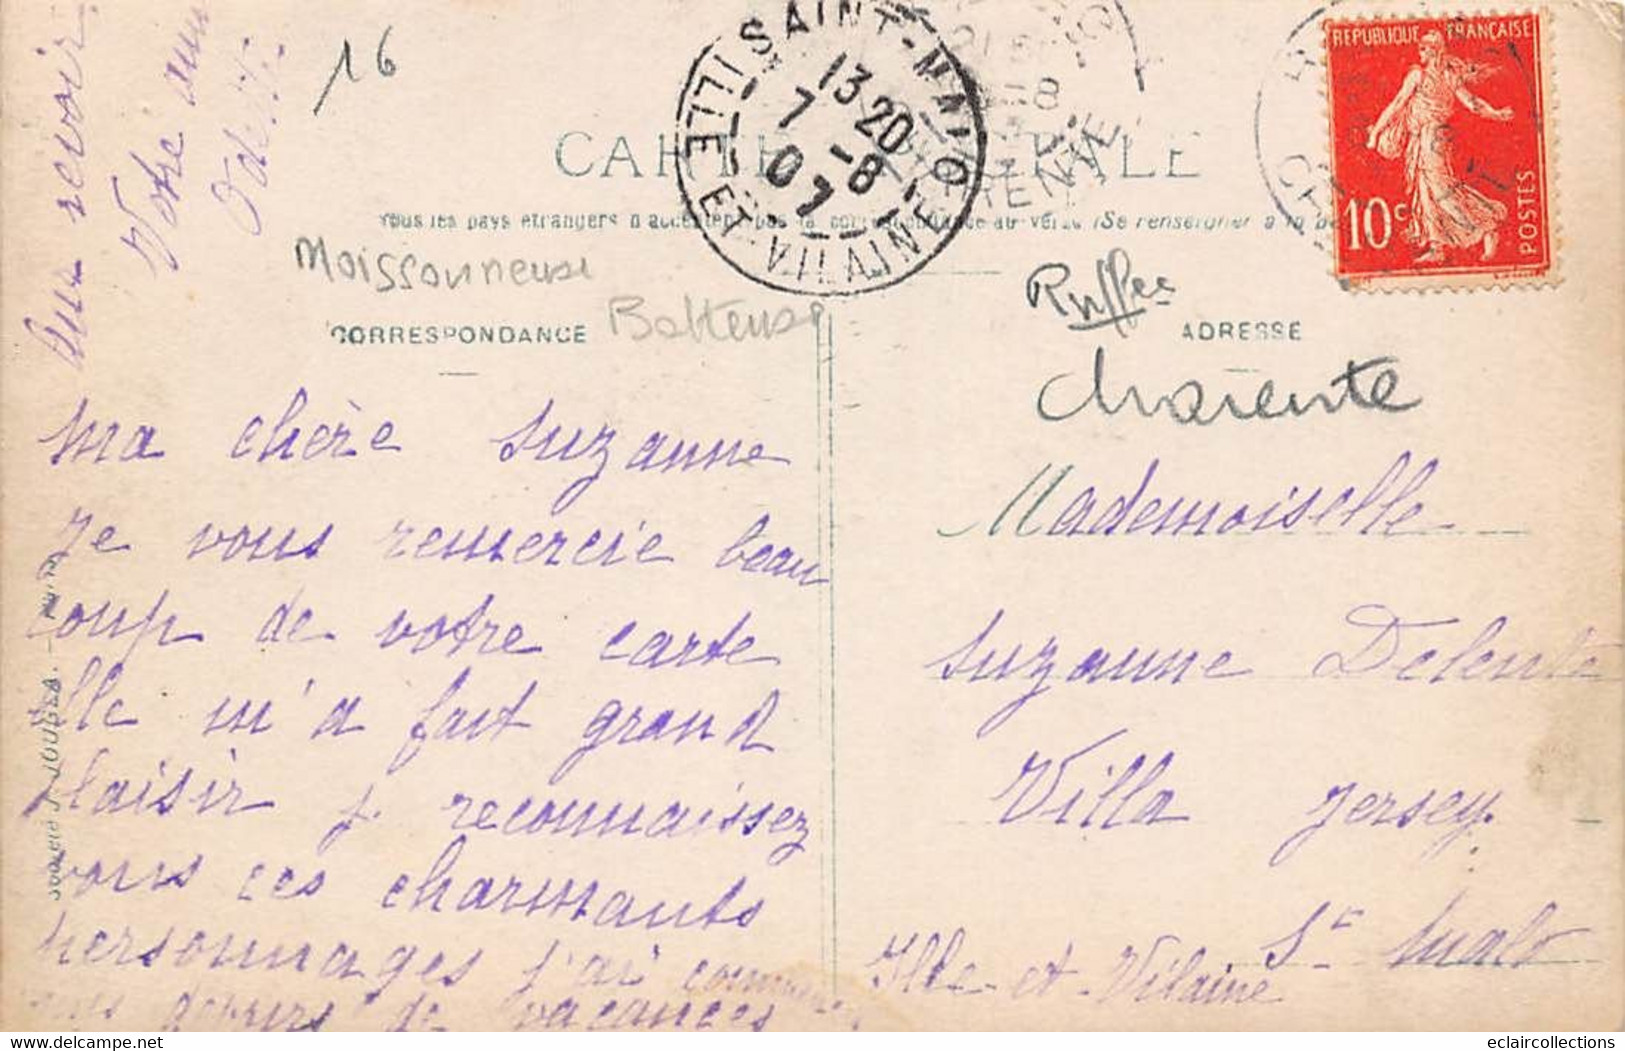 16
RÉPUBLIQUE FRANÇAISE
10c
POSTES
SAINT-MALO
13 20
7 -8
07
ILLE-ET-VILAINE
CARTE POSTALE
Tous les pays étrangers n'acceptent pas la correspondance au verso (Se renseigner à la
Moissonneuse
Batteuse
Ruffec
CORRESPONDANCE
ADRESSE
Charente
Ma chère Suzanne
Je vous remercie beau
coup de votre carte
elle m'a fait grand
plaisir j. reconnaissez
vous ces charmants
personnages j'ai
devoirs de vacances
Au revoir
Votre amie
Odette
Mademoiselle
Suzanne Delente
Villa Jersey
St Malo
Ille-et-Vilaine
eclaircollections